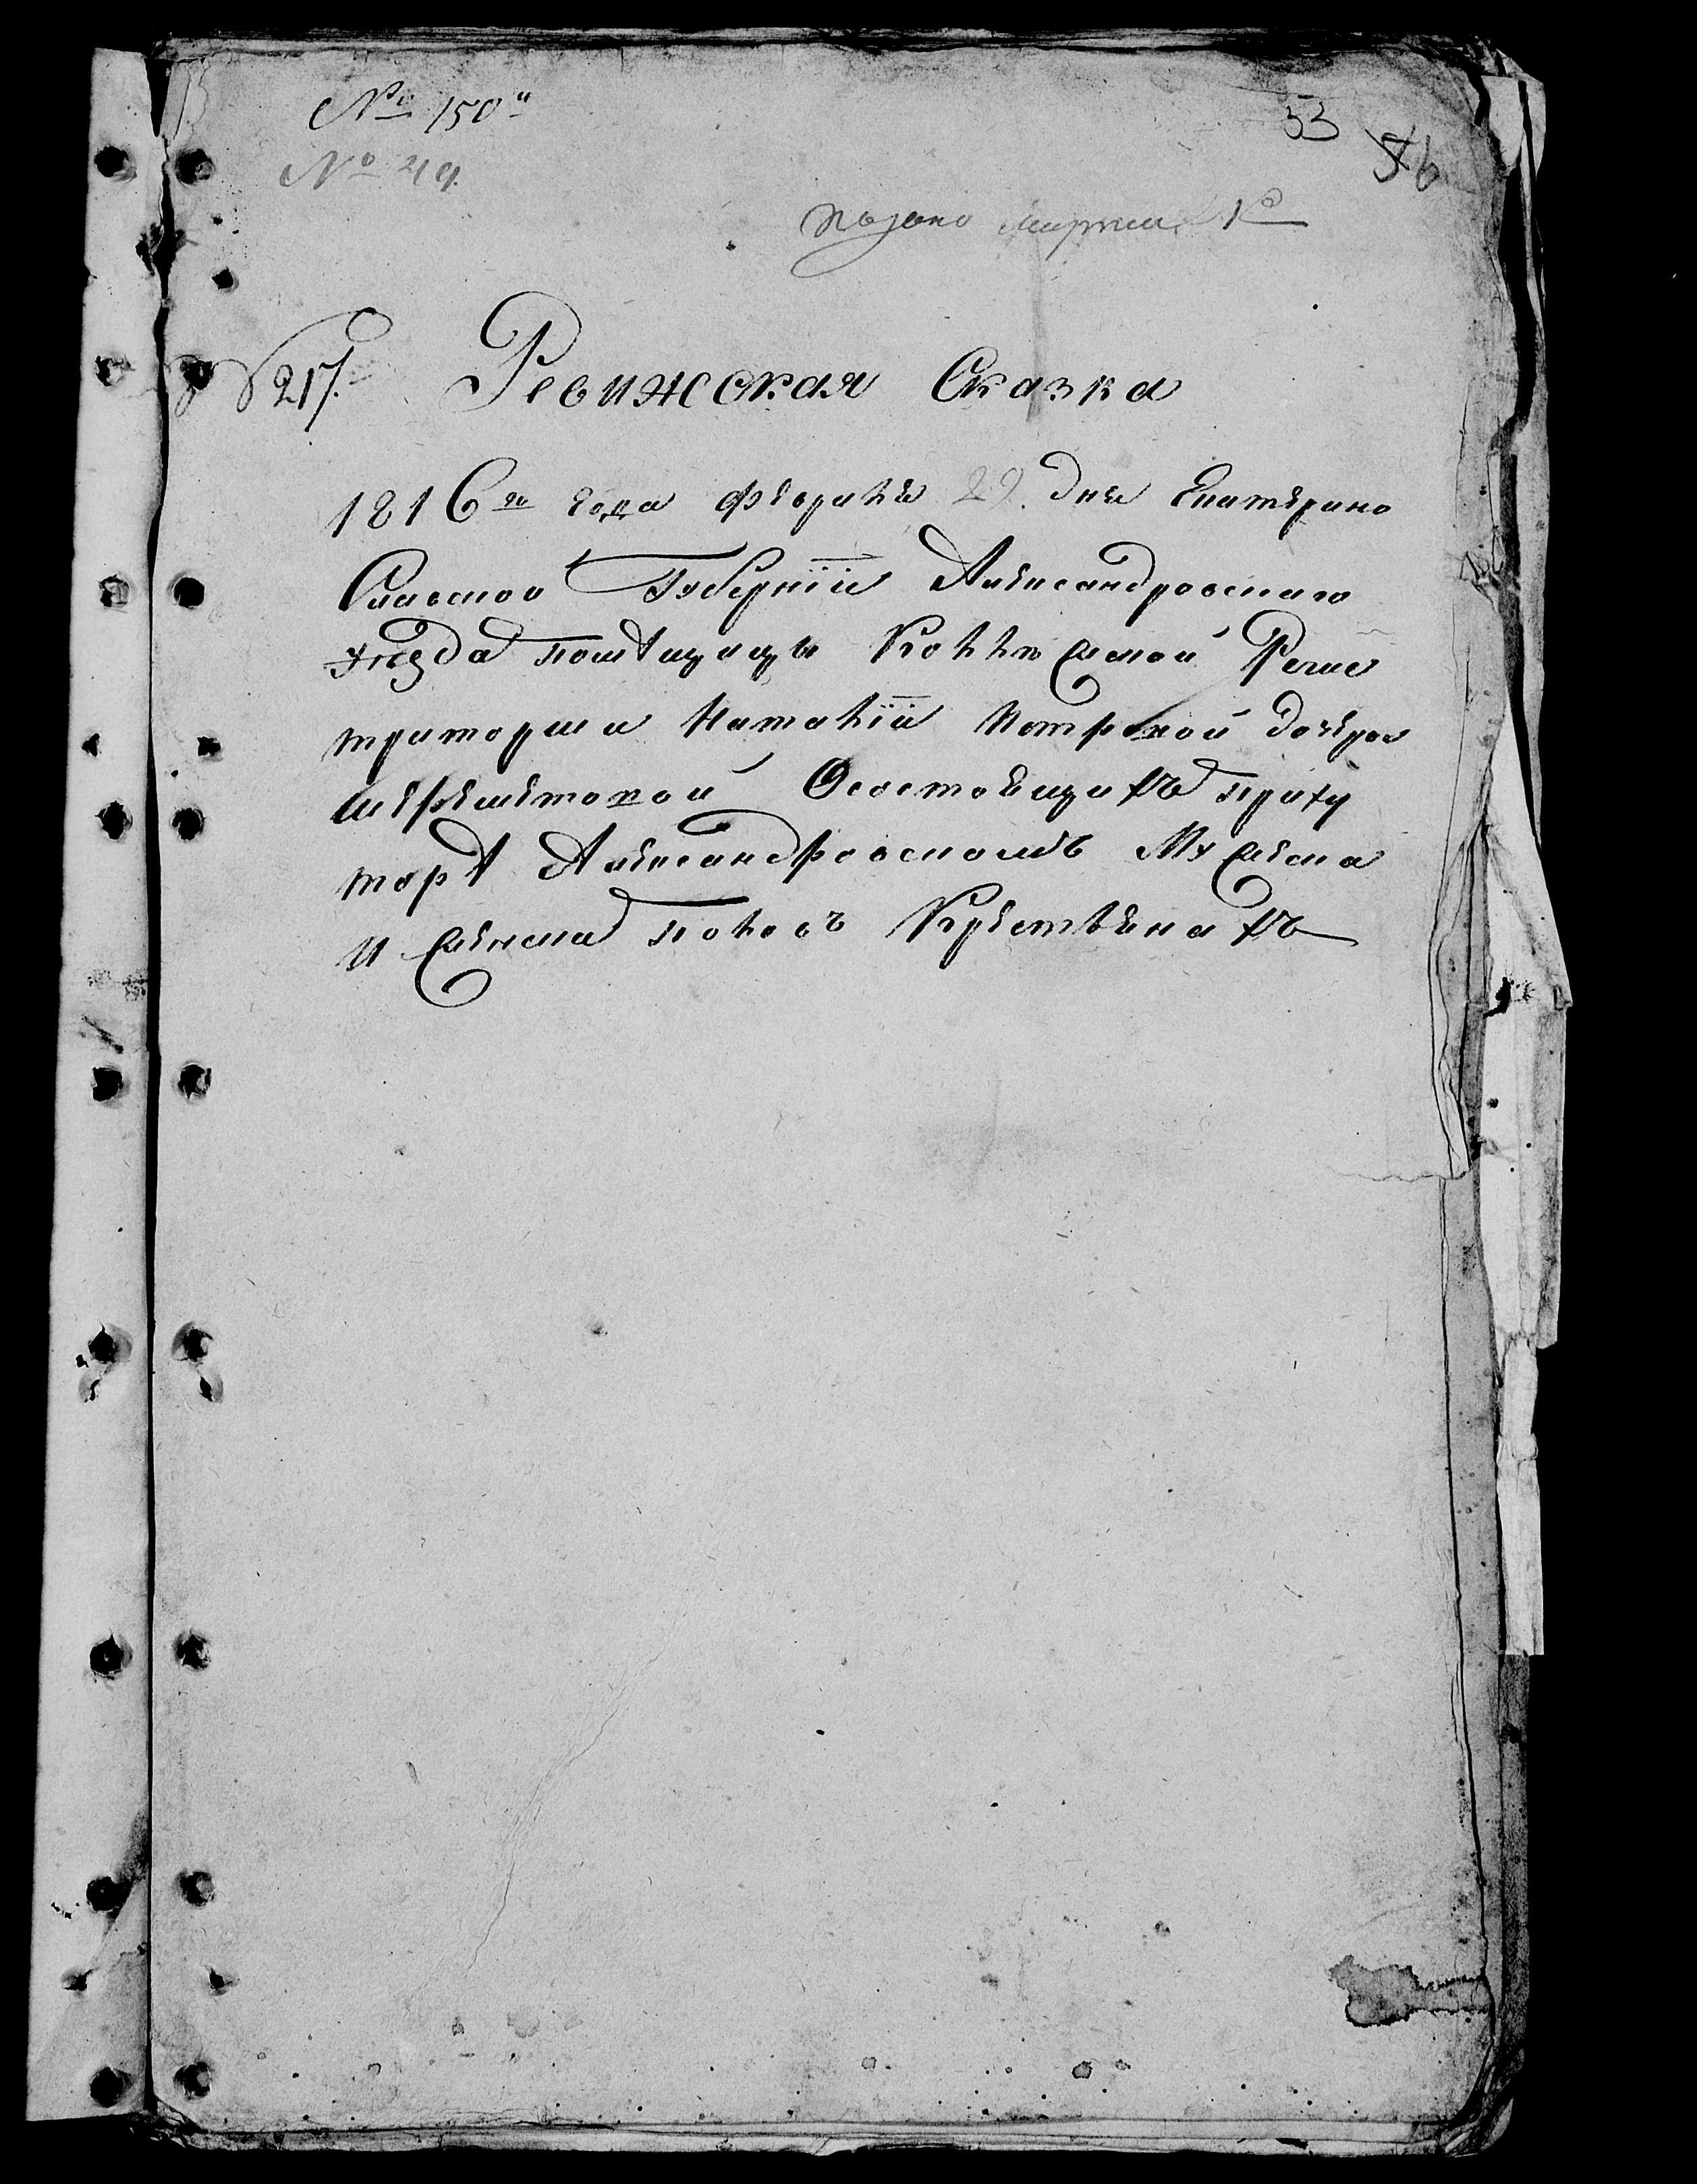 № 150й
№ 49.
53
56
подано марта 1го
217. Ревижская Сказка
1816го года февраля 29. дня Екатерино
Славской Губернїи Александровскаго
уезда помещицы Коллежской Реги
страторши Наталїи Петровой дочери
Шереметовой О состоящихъ при ху
торе Александровскомъ Мужеска
и женска полов Крестьянахъ